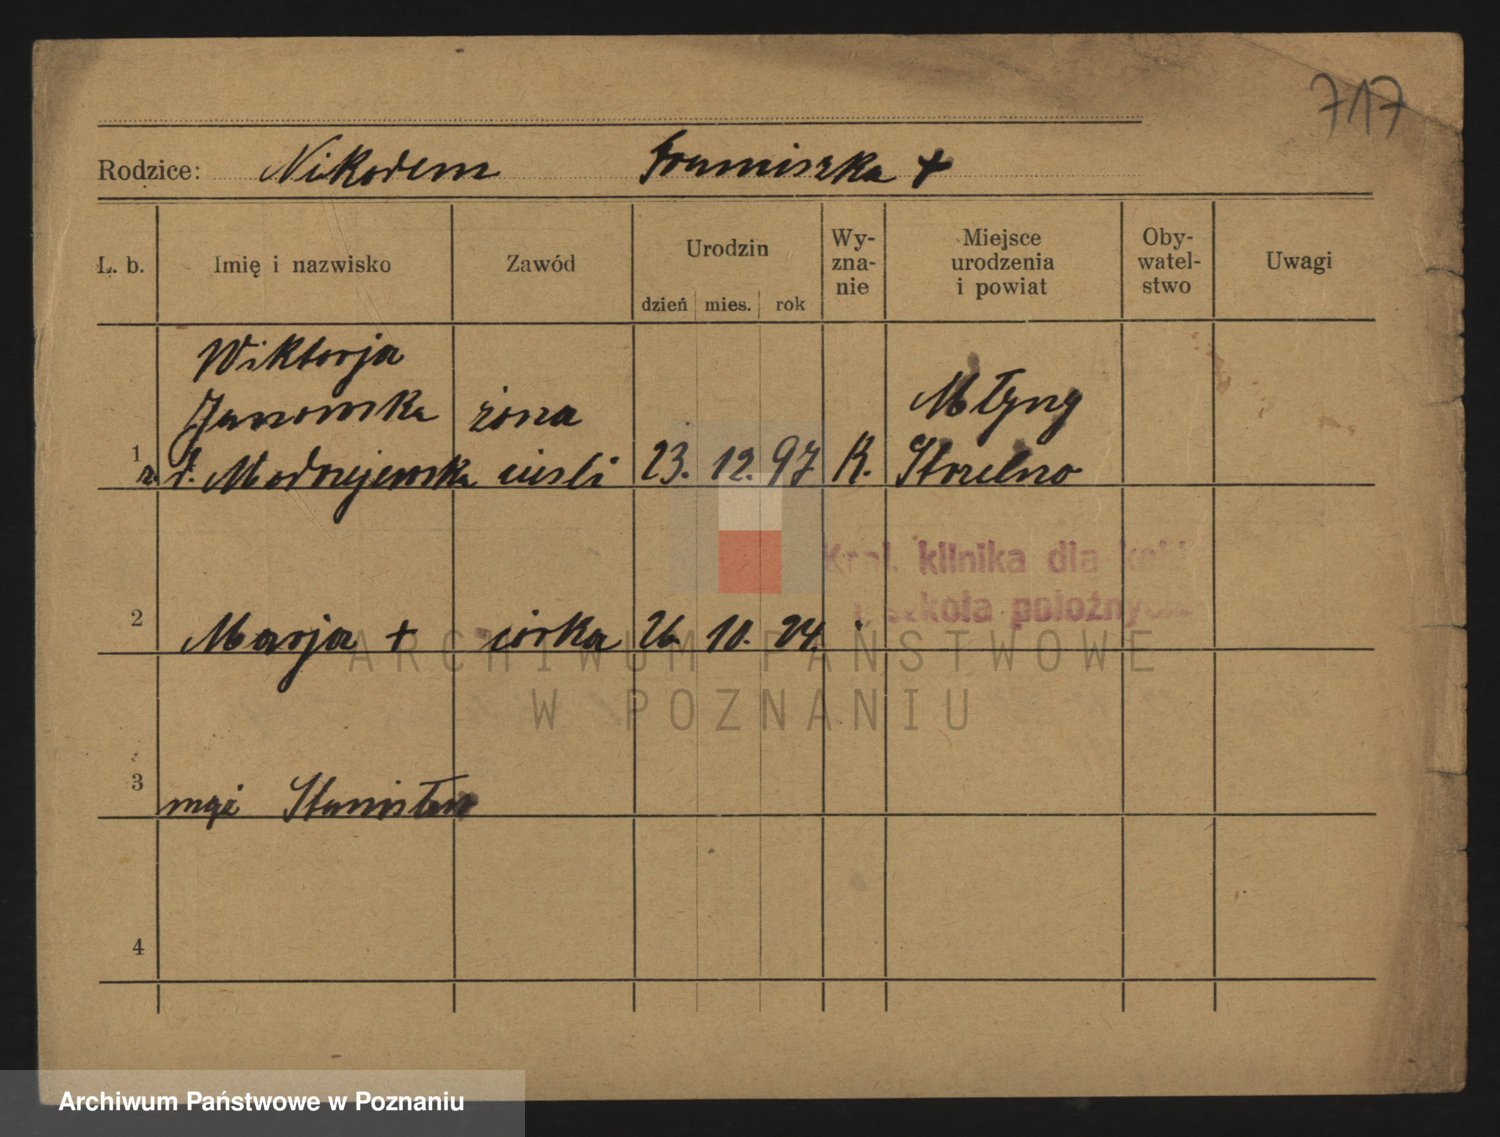 717
Rodzice: Nikodem Franciszka +
L. b. Imię i nazwisko Zawód Urodzin dzień mies. rok Wy-zna-nie Miejsce urodzenia i powiat Oby-watel-stwo Uwagi
Wiktorja
Janowska żona Młyny
1 z d. Modrzejewska cieśli 23. 12. 97 R. Strzelno
klinika dla
szkoła położnych
2 Marja + córka 26. 10. 24.
ARCHIWUM PAŃSTWOWE
W POZNANIU
3 mąż Stanisław
4
Archiwum Państwowe w Poznaniu